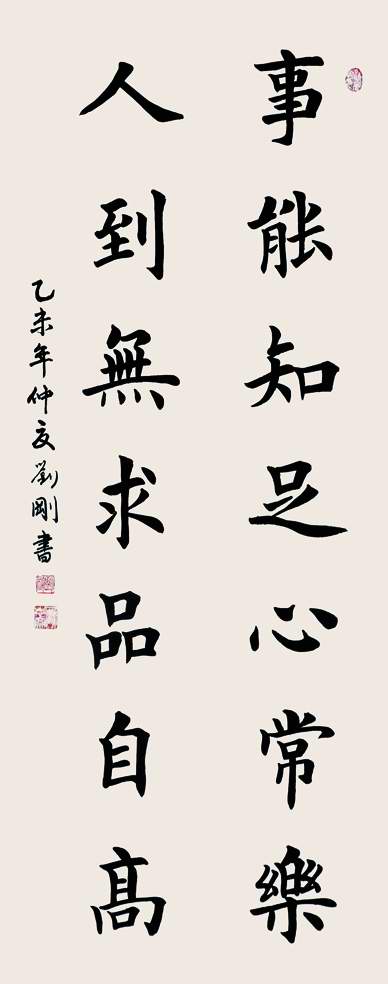 事能知足心常樂
人到無求品自高
乙未年仲夏劉剛書